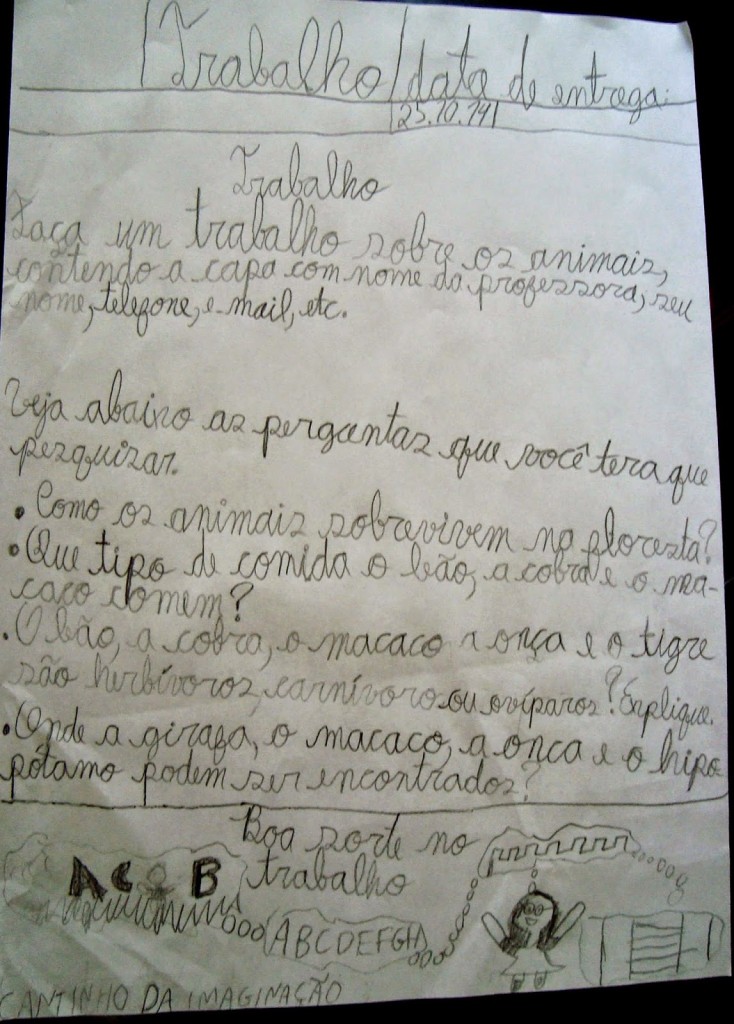 Trabalho data de entrega:
25.10.14
Trabalho
Faça um trabalho sobre os animais,
contendo a capa com nome da professora, seu
nome, telefone, e-mail, etc.
Veja abaixo as perguntas que você tera que
pesquizar.
• Como os animais sobrevivem na floresta?
• Que tipo de comida o cão, a cobra e o ma-
caco comem?
• O cão, a cobra, o macaco a onça e o tigre
são herbívoros, carnívoro ou ovíparos? Explique.
• Onde a girafa, o macaco, a onca e o hipo
pótamo podem ser encontrados?
Boa sorte no
trabalho
A C B
ABCDEFGH
CANTINHO DA IMAGINAÇÃO